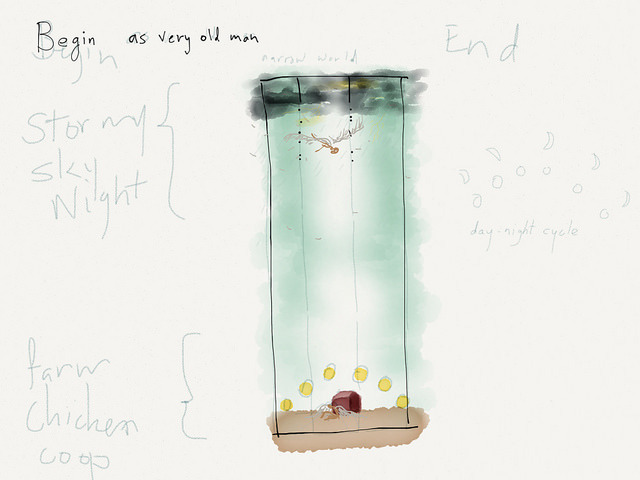 Begin as very old man
Begin
End
narrow world
Stormy
Sky
Night
day-night cycle
farm
Chicken
coop